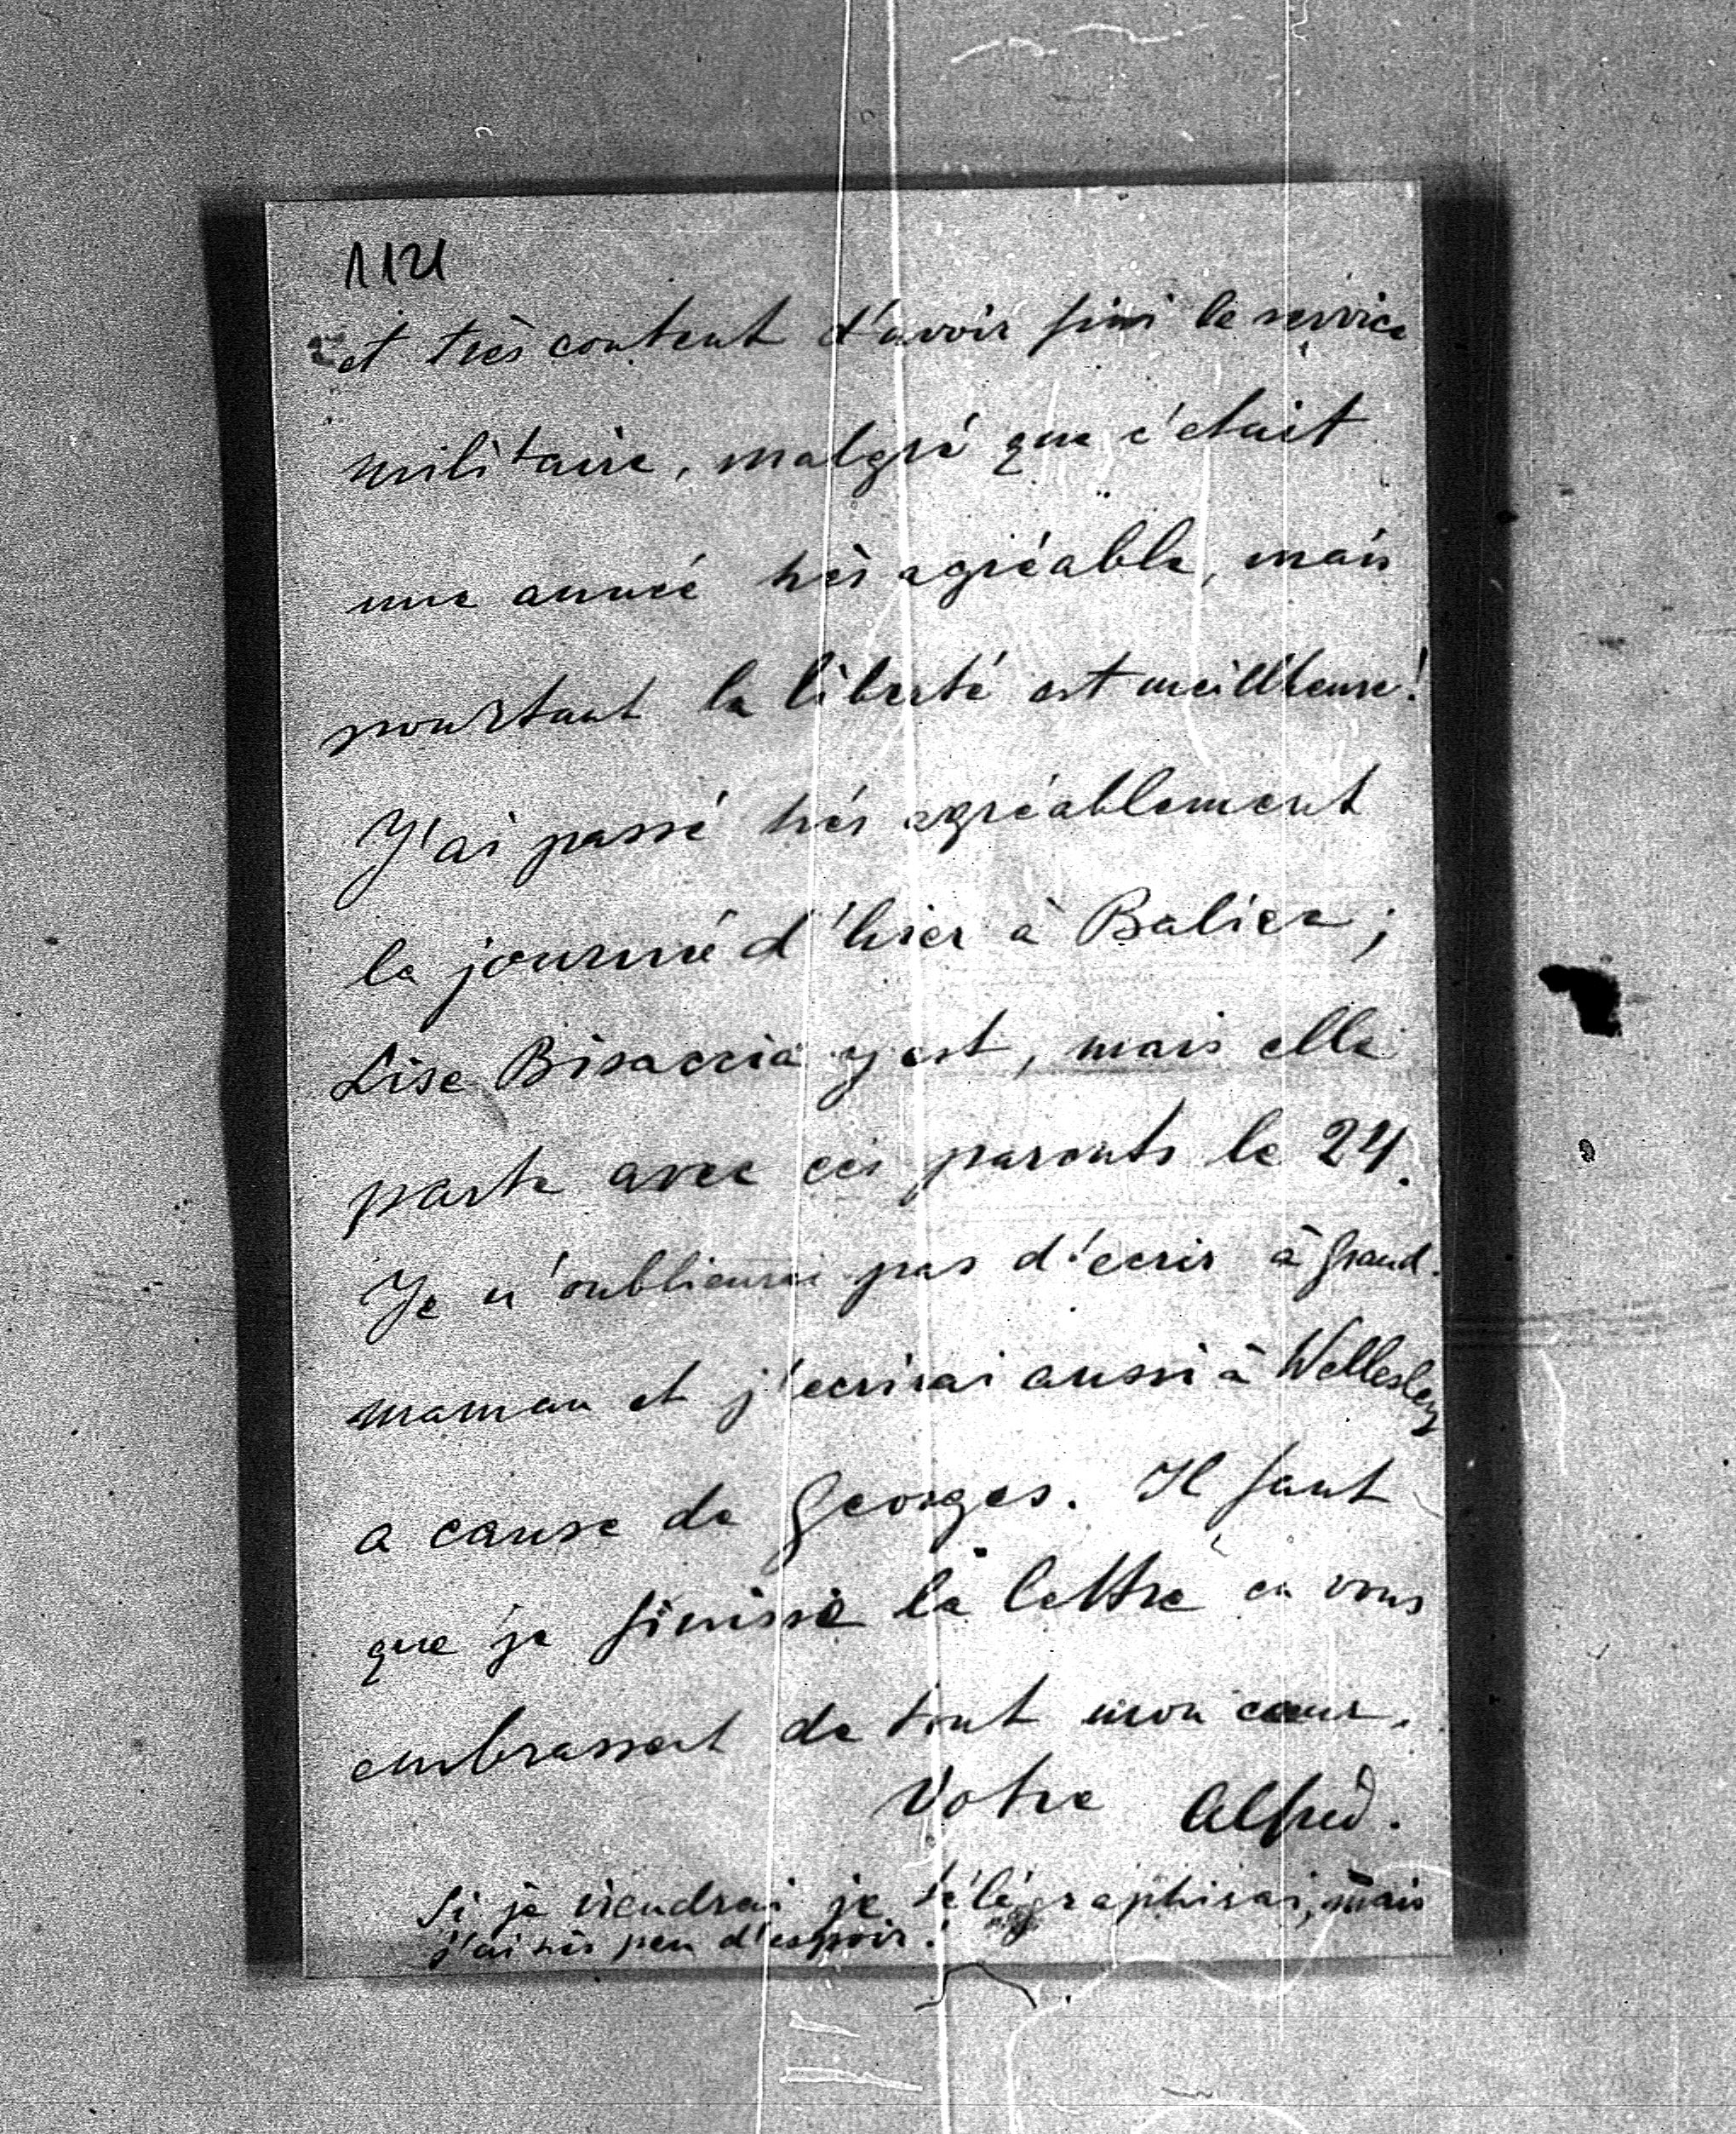 1121
et très content d'avoir fini le service
militaire, malgré que c'etait
une anneé très agréable, mais
pourtant la liberté est meillieure!
J'ai passé trés agréablement
la journeé d'hier à Balice;
Lise Bisaccia y est, mais elle
parte avec ces parents le 24.
Je n'oublieurai pas d'ecrir à Grand-
maman et j'ecrirai aussi à Wellesley
a cause de Georges. Il faut
que je finisse la lettre en vous
embrassent de tout mon cœur.
Votre Alfred.
Si je viendrai je télégraphirai, mais
j'ai très peu d'espoir!